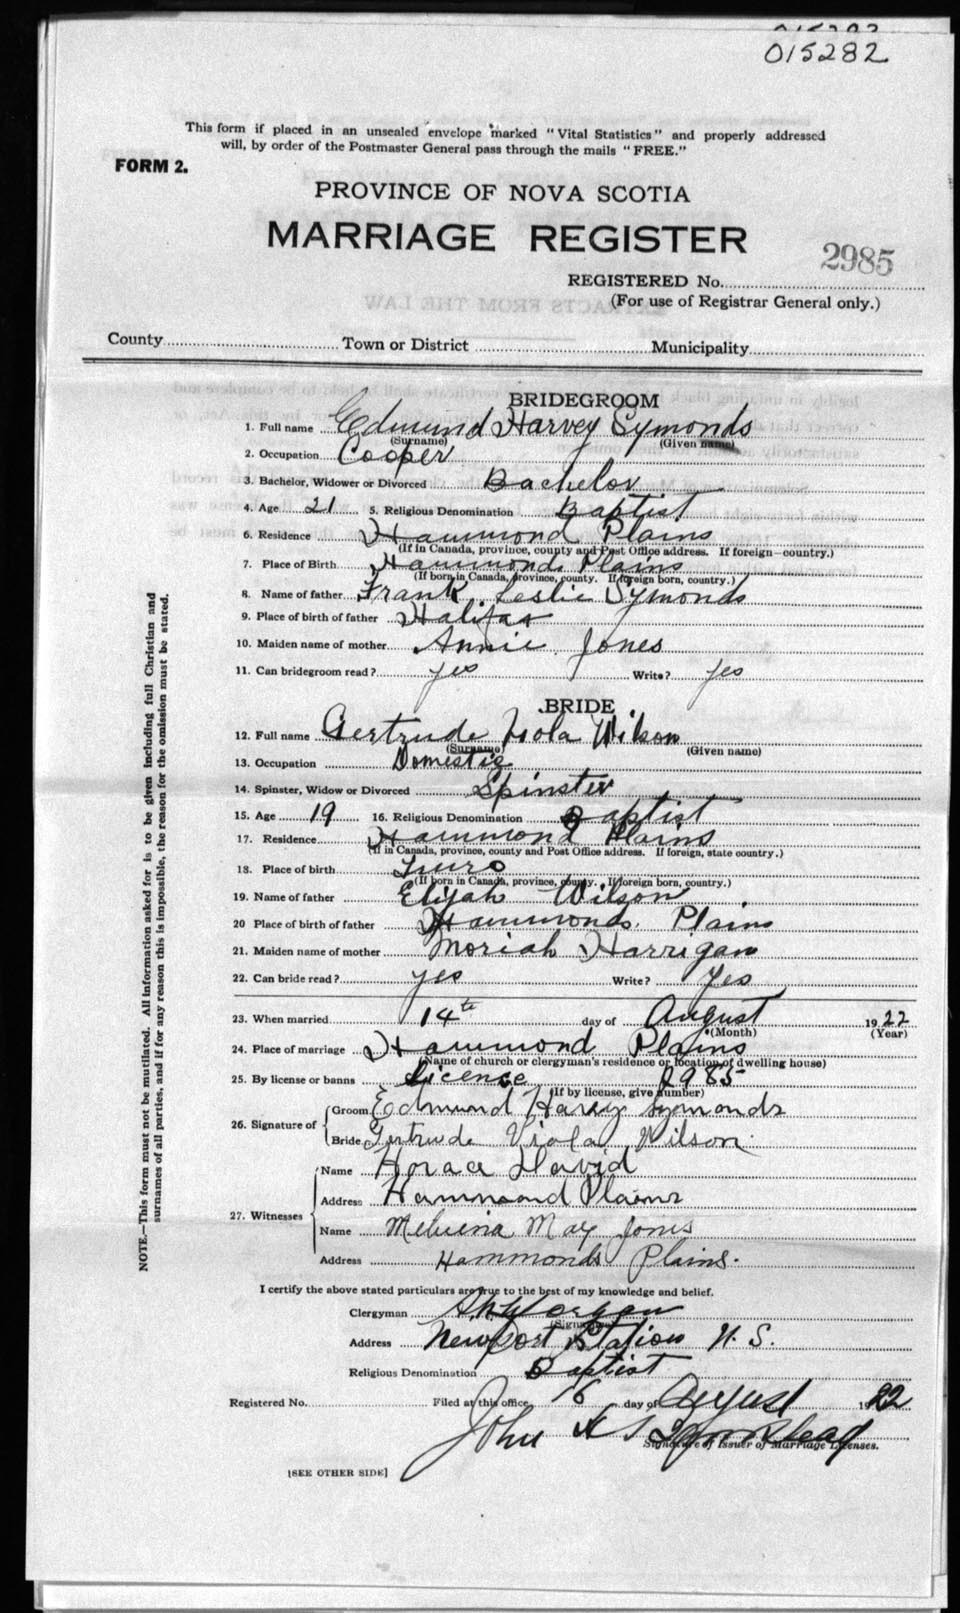 015282
This form if placed in an unsealed envelope marked "Vital Statistics" and properly addressed
will, by order of the Postmaster General pass through the mails "FREE."
FORM 2.
PROVINCE OF NOVA SCOTIA
MARRIAGE REGISTER
2985
REGISTERED No.
(For use of Registrar General only.)
County Town or District Municipality
BRIDEGROOM
1. Full name Edmund Harvey Symonds
(Surname) (Given name)
2. Occupation Cooper
3. Bachelor, Widower or Divorced Bachelor
4. Age 21 5. Religious Denomination Baptist
6. Residence Hammond Plains
(If in Canada, province, county and Post Office address. If foreign—country.)
7. Place of Birth Hammonds Plains
(If born in Canada, province, county. If foreign born, country.)
8. Name of father Frank Leslie Symonds
9. Place of birth of father Halifax
10. Maiden name of mother Annie Jones
11. Can bridegroom read? yes Write? yes
BRIDE
12. Full name Gertrude Viola Wilson
(Surname) (Given name)
13. Occupation Domestic
14. Spinster, Widow or Divorced Spinster
15. Age 19 16. Religious Denomination Baptist
17. Residence Hammond Plains
(If in Canada, province, county and Post Office address. If foreign, state country.)
18. Place of birth Truro
(If born in Canada, province, county. If foreign born, country.)
19. Name of father Elijah Wilson
20 Place of birth of father Hammonds Plains
21. Maiden name of mother Moriah Harrigan
22. Can bride read? yes Write? Yes
23. When married 14th day of August 1922
(Month) (Year)
24. Place of marriage Hammond Plains
(Name of church or clergyman's residence or location of dwelling house)
25. By license or banns Licence 2985
(If by license, give number)
26. Signature of
Groom Edmund Harvey Symonds
Bride Gertrude Viola Wilson
27. Witnesses
Name Horace David
Address Hammond Plains
Name Melvina May Jones
Address Hammonds Plains.
I certify the above stated particulars are true to the best of my knowledge and belief.
Clergyman Worgan
(Signature)
Address Newport Station N. S.
Religious Denomination Baptist
Registered No. Filed at this office 16 day of August 1922
John
Signature of Issuer of Marriage Licenses.
[SEE OTHER SIDE]
NOTE.—This form must not be mutilated. All information asked for is to be given including full Christian and
surnames of all parties, and if for any reason this is impossible, the reason for the omission must be stated.